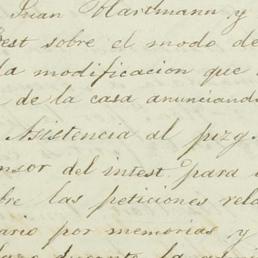 Juan Hartmann y
est sobre el modo de
la modificacion que
de la casa anunciand
Asistencia al juzg.
nsor del intest. para
bre las peticiones rela
ario por memorias, y